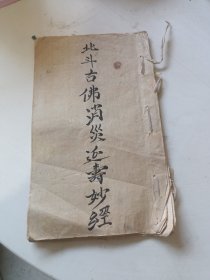 北斗古佛消災延壽妙經